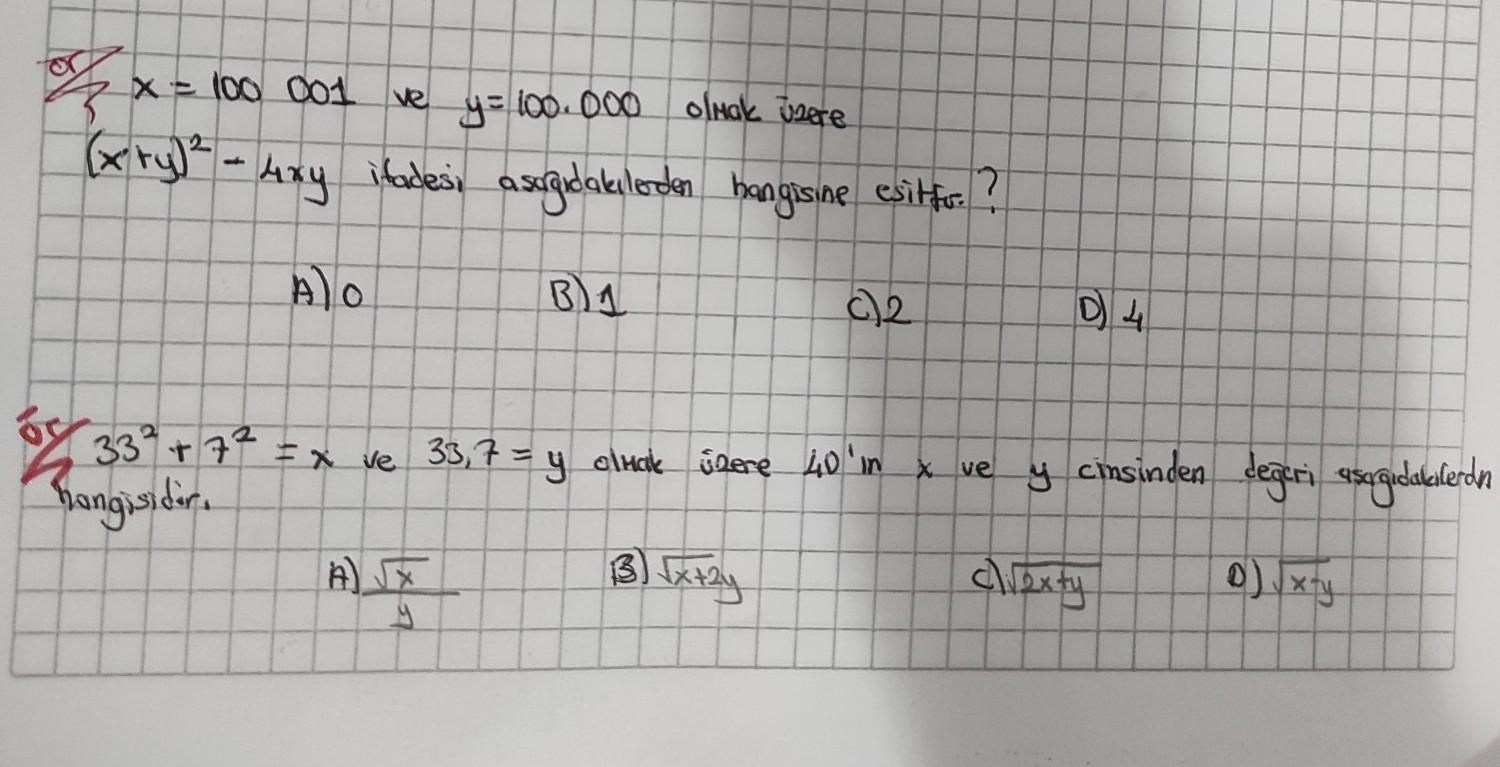 ör
x = 100 001 ve y = 100.000 olmak üzere
(x+y)² - 4xy ifadesi aşağıdakilerden hangisine eşittir?
A) 0 B) 1 C) 2 D) 4
ör
33² + 7² = x ve 33,7 = y olmak üzere 40'ın x ve y cinsinden değeri aşağıdakilerdn
hangisidir.
A) √x/y B) √x+2y C) √2x+y D) √x+y